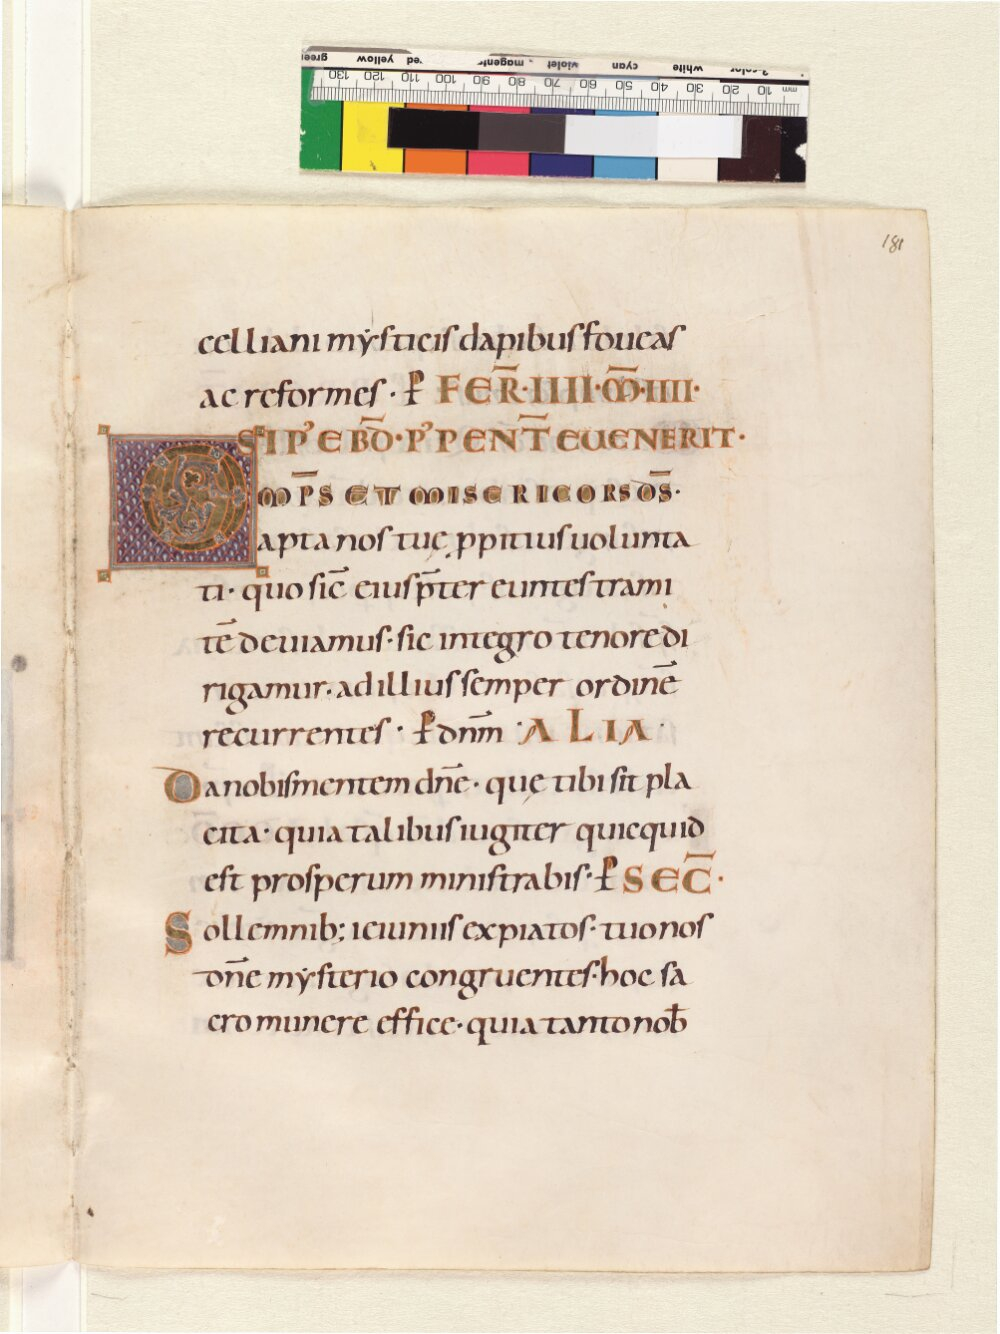 green yellow red magenta violet cyan white 3-color
130 120 110 100 90 80 70 60 50 40 30 20 10 mm
181
celliani mẏsticis dapibus foueas
ac reformes · P̄ FER̄·IIII·M̄·IIII·
SI P’ EBD̄·P’ PENT̄ EUENERIT·
OMP̄S ET MISERICORS D̄S·
apta nos tuę ppitius uolunta
ti· quo sic̄ eius p̄ter euntes trami
tē deuiamus· sic integro tenore di
rigamur· ad illius semper ordinē
recurrentes · P̄ dnm̄ · ALIA ·
Da nobis mentem dn̄e · quę tibi sit pla
cita· quia talibus iugiter quicquid
est prosperum ministrabis· P̄ SEC̄·
Sollemnib; ieiuniis expiatos· tuo nos
dn̄e mẏsterio congruentes· hoc sa
cro munere effice· quia tanto nob̄